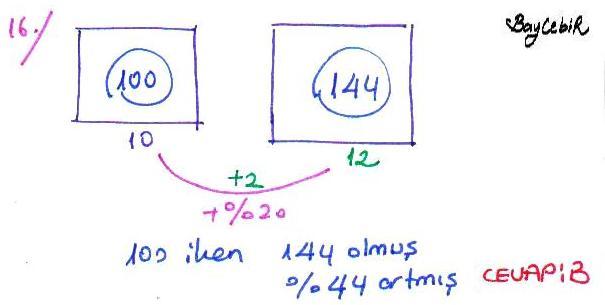 16./
BayCebiR
100
144
10
12
+2
+%20
100 iken 144 olmuş
%44 artmış CEVAP:B